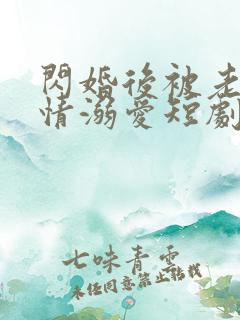 閃婚後被老
情溺愛短劇
七味青雲
未任同意禁止轉載